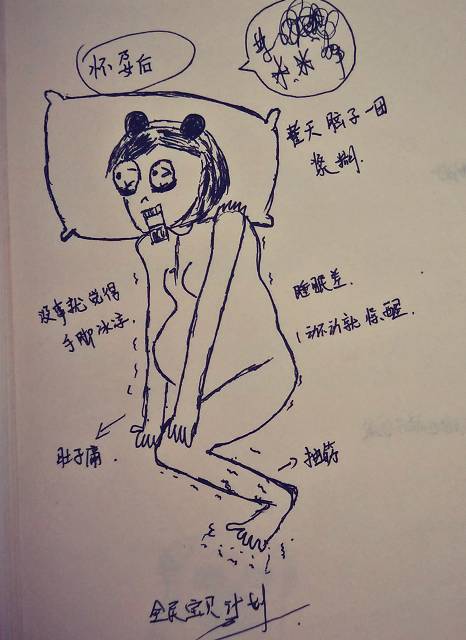 怀孕后
整天脑子一团
浆糊.
没事就觉得
手脚冰凉.
睡眠差.
动不动就惊醒.
肚子痛.
抽筋
全民宝贝计划